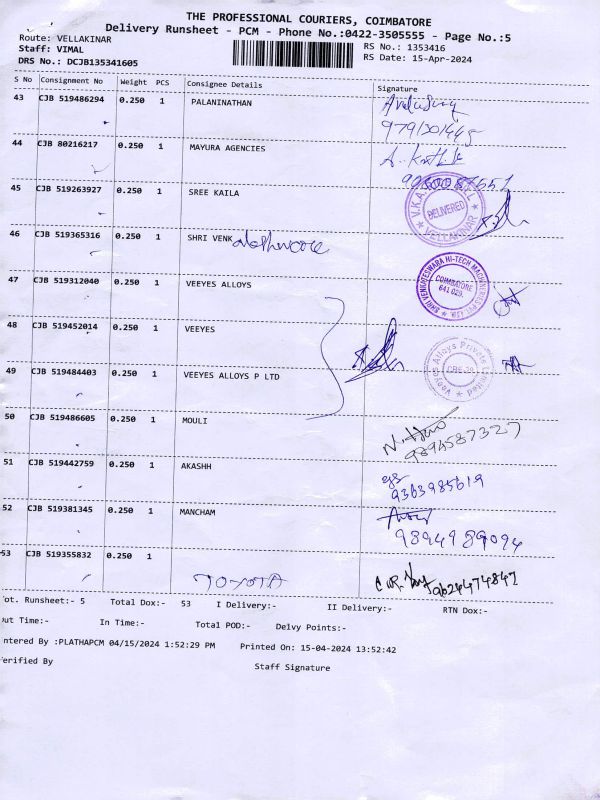 THE PROFESSIONAL COURIERS, COIMBATORE
Delivery Runsheet - PCM - Phone No.:0422-3505555 - Page No.:5
Route: VELLAKINAR
RS No.: 1353416
Staff: VIMAL
RS Date: 15-Apr-2024
DRS No.: DCJB135341605
S No Consignment No Weight PCS Consignee Details Signature
43 CJB 519486294 0.250 1 PALANINATHAN
44 CJB 80216217 0.250 1 MAYURA AGENCIES
45 CJB 519263927 0.250 1 SREE KAILA
DELIVERED
VELLAKINAR
46 CJB 519365316 0.250 1 SHRI VENK
47 CJB 519312040 0.250 1 VEEYES ALLOYS
SHRI VENKATESWARA HI-TECH MACHINERIES PVT. LTD.
COIMBATORE
641 029.
48 CJB 519452014 0.250 1 VEEYES
49 CJB 519484403 0.250 1 VEEYES ALLOYS P LTD
Veeyes Alloys Private Limited
50 CJB 519486605 0.250 1 MOULI
9894587327
51 CJB 519442759 0.250 1 AKASHH
9363985619
52 CJB 519381345 0.250 1 MANCHAM
9894989094
53 CJB 519355832 0.250 1 TOYOTA
ot. Runsheet:- 5 Total Dox:- 53 I Delivery:- II Delivery:- RTN Dox:-
ut Time:- In Time:- Total POD:- Delvy Points:-
ntered By :PLATHAPCM 04/15/2024 1:52:29 PM Printed On: 15-04-2024 13:52:42
erified By Staff Signature